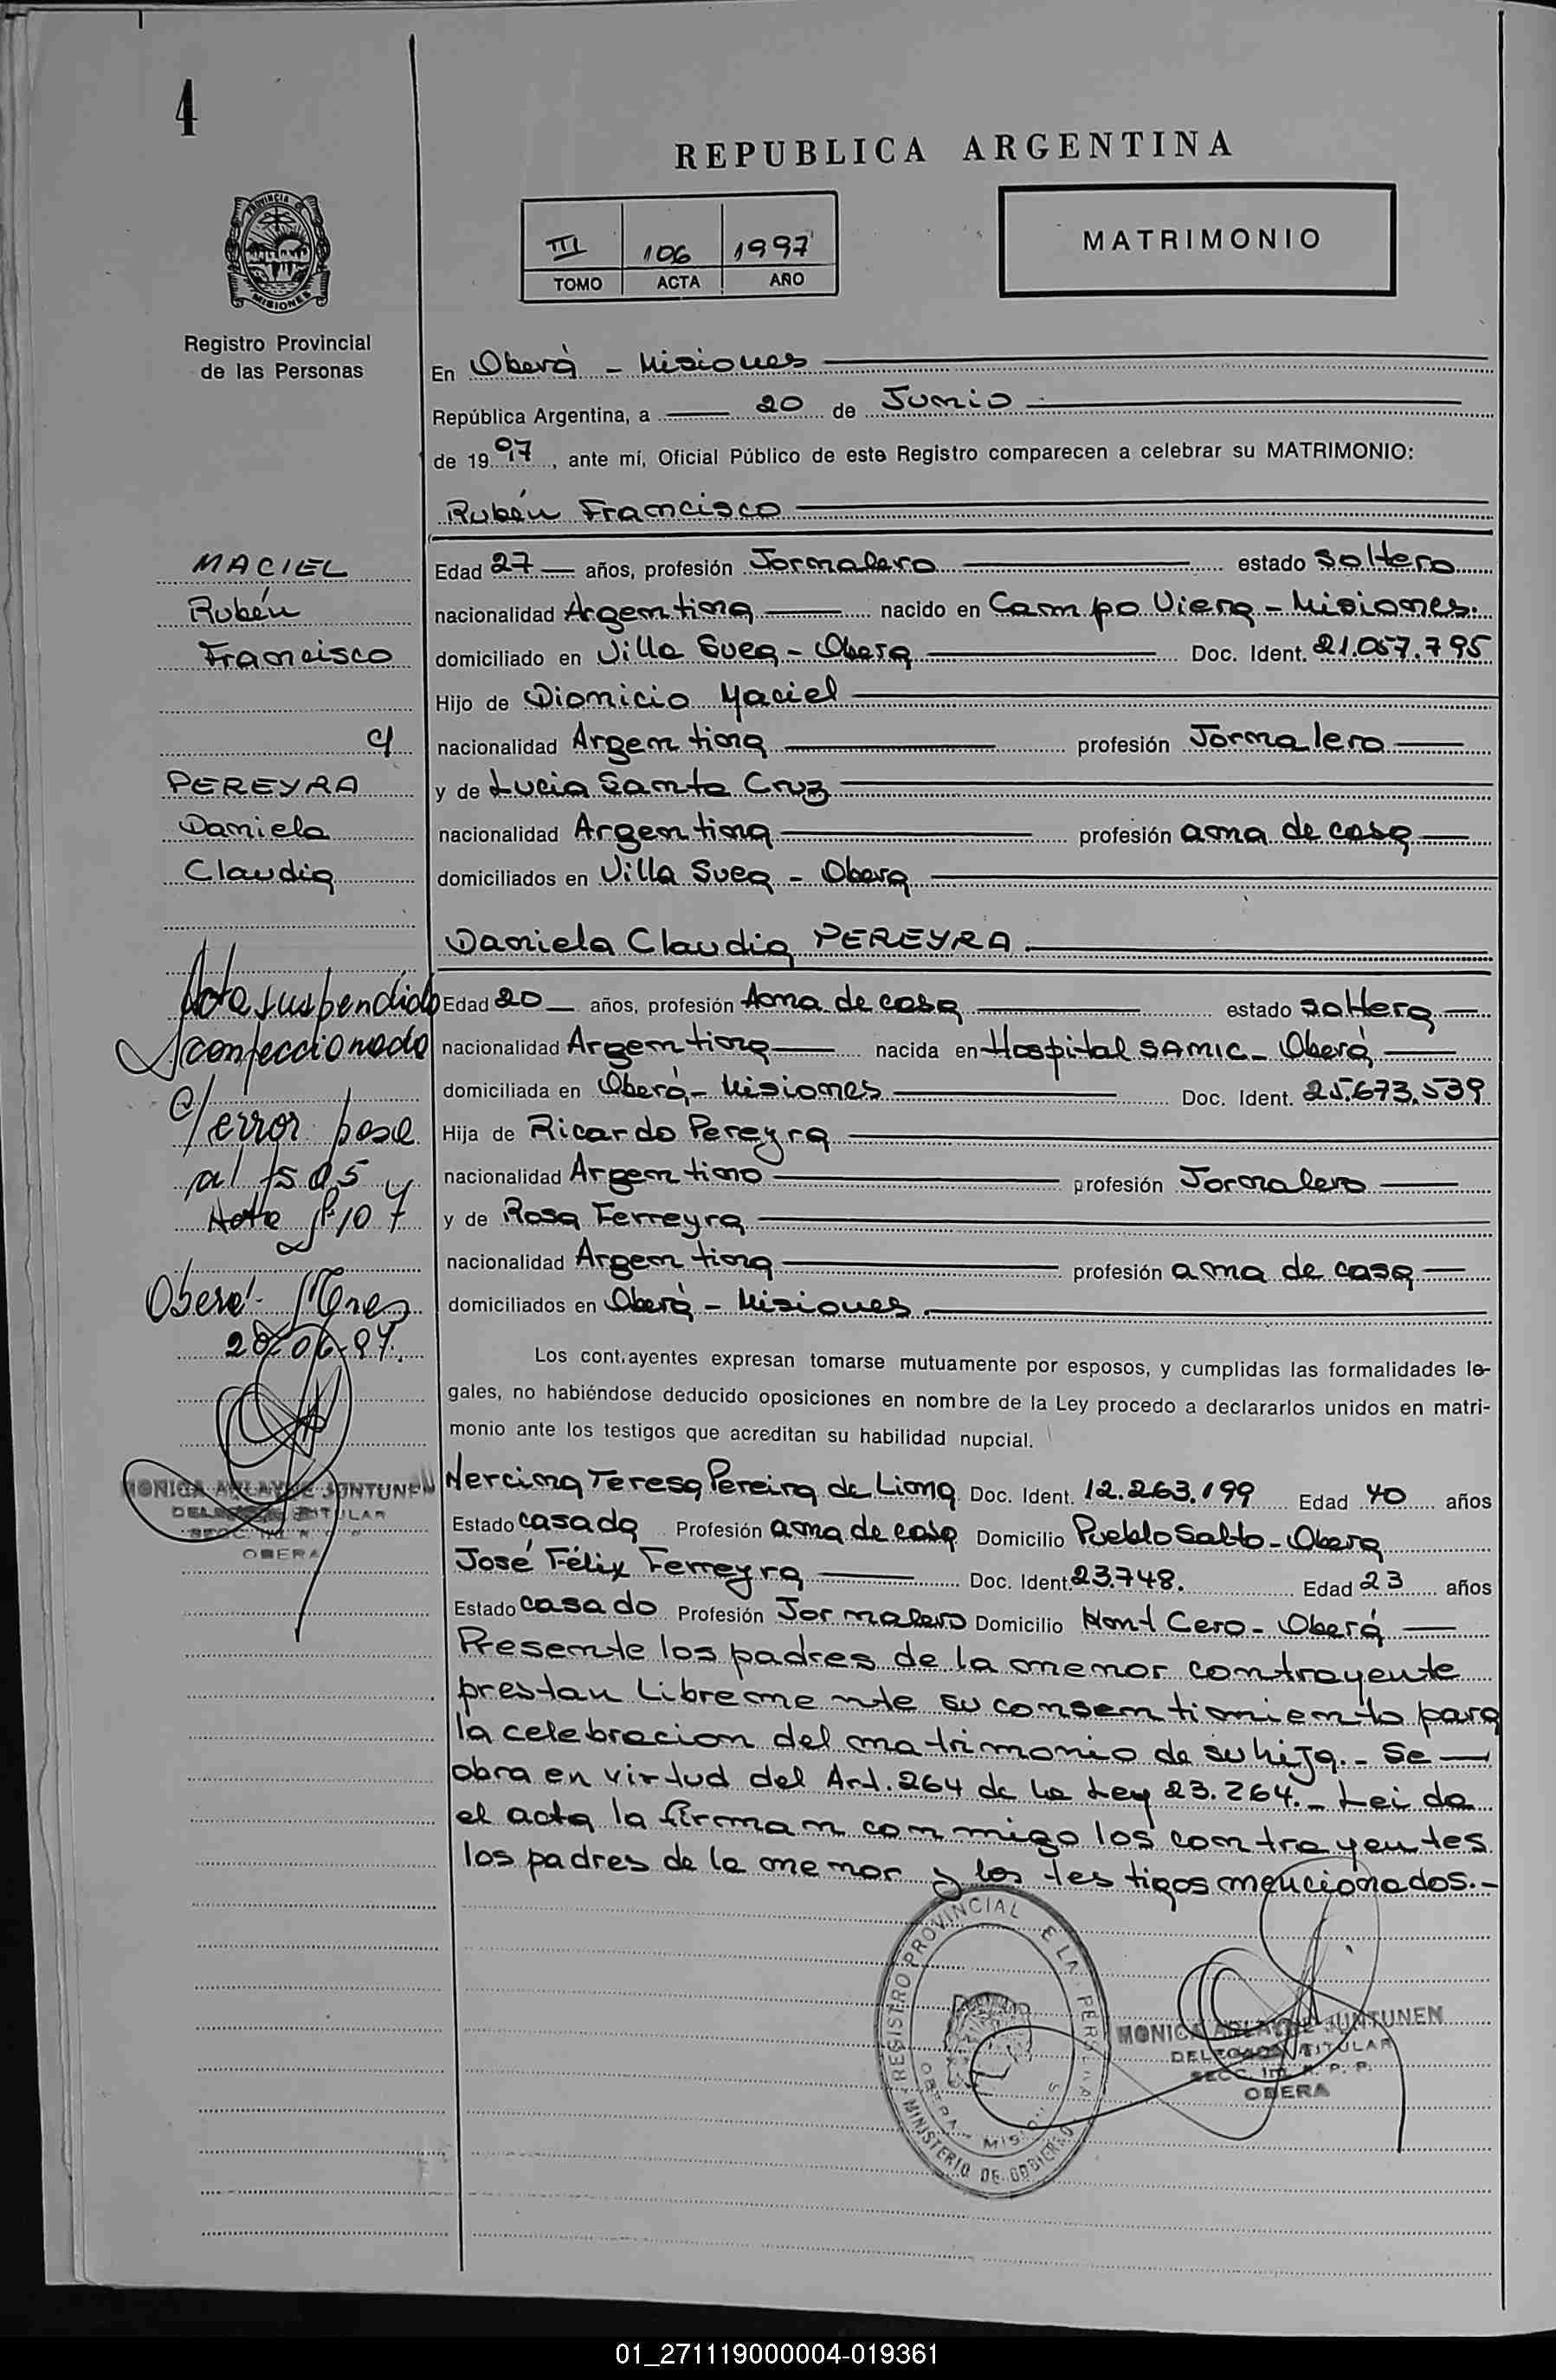 4
REPUBLICA ARGENTINA
PROVINCIA DE MISIONES
III 106 1997
TOMO ACTA AÑO
MATRIMONIO
Registro Provincial
de las Personas
En Oberá - Misiones
República Argentina, a 20 de Junio
de 1997, ante mí, Oficial Público de este Registro comparecen a celebrar su MATRIMONIO:
Rubén Francisco
MACIEL
Rubén
Francisco
c/
PEREYRA
Daniela
Claudia
Edad 27 años, profesión Jornalero estado Soltero
nacionalidad Argentina nacido en Campo Viera - Misiones.
domiciliado en Villa Suea - Obera Doc. Ident. 21.057.795
Hijo de Dionicio Maciel
nacionalidad Argentina profesión Jornalero
y de Lucia Santa Cruz
nacionalidad Argentina profesión ama de casa
domiciliados en Villa Suea - Obera
Daniela Claudia PEREYRA
Edad 20 años, profesión Ama de casa estado soltera
nacionalidad Argentina nacida en Hospital SAMIC - Oberá
domiciliada en Oberá - Misiones Doc. Ident. 25.673.539
Hija de Ricardo Pereyra
nacionalidad Argentino profesión Jornalero
y de Rosa Ferreyra
nacionalidad Argentina profesión ama de casa
domiciliados en Oberá - Misiones
suspendido
confeccionado
c/ error pase
al
107
Oberá Mnes
20-06-97.
MONICA JUNTUNEN
DELEGADA TITULAR
OBERA
Los contrayentes expresan tomarse mutuamente por esposos, y cumplidas las formalidades le-
gales, no habiéndose deducido oposiciones en nombre de la Ley procedo a declararlos unidos en matri-
monio ante los testigos que acreditan su habilidad nupcial.
Nercina Teresa Pereira de Liona Doc. Ident. 12.263.199 Edad 40 años
Estado casada Profesión ama de casa Domicilio Pueblo Salto - Obera
José Félix Ferreyra Doc. Ident. 23.748. Edad 23 años
Estado casado Profesión Jornalero Domicilio Mont Cero - Oberá
Presente los padres de la menor contrayente
prestan Libremente su consentimiento para
la celebracion del matrimonio de su hija.- Se
obra en virtud del Art. 264 de la Ley 23.264.- Leida
el acta la firman conmigo los contrayentes
los padres de la menor y los testigos mencionados.-
REGISTRO PROVINCIAL DE LA PERSONA
OBERA - MISIONES
MINISTERIO DE GOBIERNO
MONICA JUNTUNEN
DELEGADA TITULAR
SECC. 1ra. R. P. P.
OBERA
01_271119000004-019361